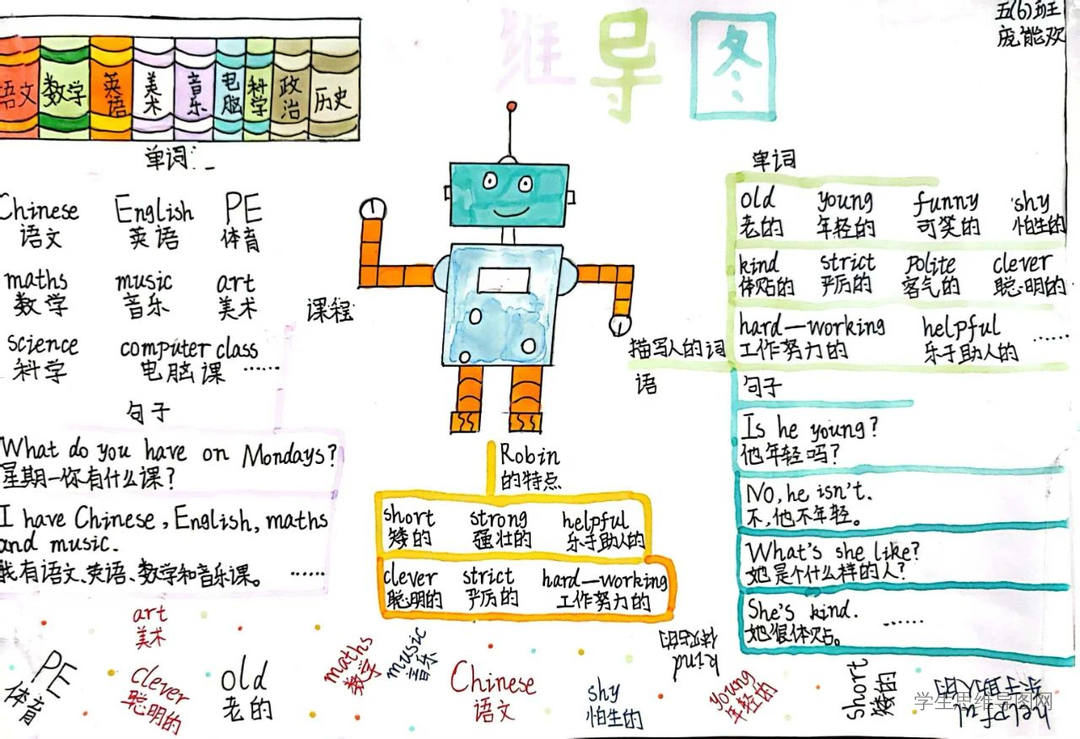 维导图
五(6)班
庞能欢
语文 数学 英语 美术 音乐 电脑 科学 政治 历史
单词:
Chinese English PE
语文 英语 体育
maths music art
数学 音乐 美术
science computer class
科学 电脑课 ……
句子
What do you have on Mondays?
星期一你有什么课?
I have Chinese, English, maths
and music.
我有语文、英语、数学和音乐课。 ……
课程
Robin
的特点
short strong helpful
矮的 强壮的 乐于助人的
clever strict hard—working
聪明的 严厉的 工作努力的
描写人的词
语
单词
old young funny shy
老的 年轻的 可笑的 怕生的
kind strict polite clever
体贴的 严厉的 客气的 聪明的
hard—working helpful
工作努力的 乐于助人的 ……
句子
Is he young?
他年轻吗?
No, he isn't.
不,他不年轻。
What's she like?
她是个什么样的人?
She's kind.
她很体贴。 ……
PE
体育
art
美术
clever
聪明的
old
老的
maths
数学
music
音乐
Chinese
语文
shy
怕生的
kind
体贴的
young
年轻的
short
矮的
helpful
乐于助人的
学生思维导图网